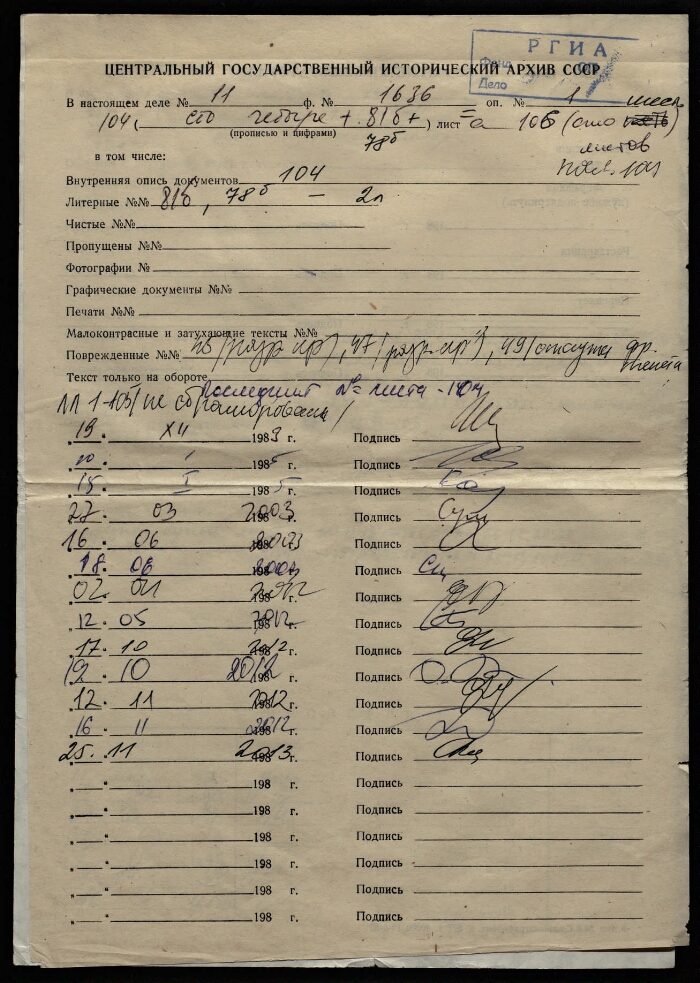 РГИА
Фонд
Дело
ЦЕНТРАЛЬНЫЙ ГОСУДАРСТВЕННЫЙ ИСТОРИЧЕСКИЙ АРХИВ СССР
В настоящем деле № 11 ф. № 1636 оп. № 1
104 (сто четыре + 81б + 78б) лист а 106 (сто шесть
(прописью и цифрами)
листов
в том числе:
Внутренняя опись документов 104
Литерные №№ 81б, 78б — 2л
Чистые №№
Пропущены №№
Фотографии №
Графические документы №№
Печати №№
Малоконтрасные и затухающие тексты №№
Поврежденные №№
Текст только на обороте
Последний № листа - 104
лл 1-103 не сброшюрованы
19 XII 1983 г. Подпись
20 I 1985 г. Подпись
15 I 1985 г. Подпись
27 03 2003 Подпись
16 06 2003 Подпись
18 06 2003 Подпись
02 04 2012 Подпись
12 05 2012 Подпись
17 10 2012 Подпись
19 10 2012 Подпись
12 11 2012 Подпись
16 11 2012 Подпись
25. 11 2013 Подпись
„ “ 198 г. Подпись
„ “ 198 г. Подпись
„ “ 198 г. Подпись
„ “ 198 г. Подпись
„ “ 198 г. Подпись
„ “ 198 г. Подпись